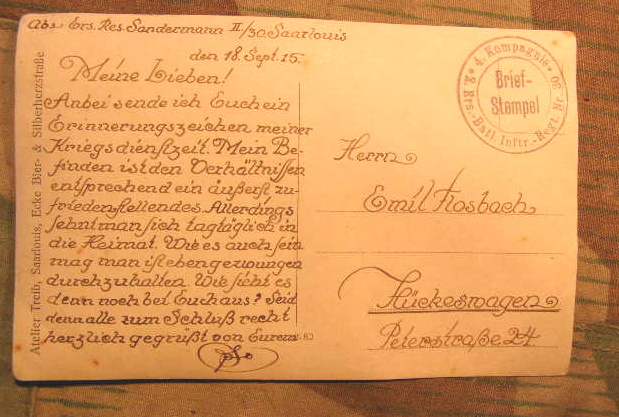 Abs: Ers. Res. Sondermann II/30. Saarlouis
den 18. Sept. 15.
Meine Lieben!
Anbei sende ich Euch ein
Erinnerungszeichen meiner
Kriegsdienstzeit. Mein Be-
finden ist den Verhältnissen
entsprechend ein äußerst zu-
friedenstellendes. Allerdings
sehnt man sich tagtäglich in
die Heimat. Wie es auch sein
mag man ist eben gezwungen
durchzuhalten. Wie sieht es
denn noch bei Euch aus? Seid
denn alle zum Schluß recht
herzlich gegrüßt von Eurem
Atelier Treib, Saarlouis, Ecke Bier- & Silberherzstraße
4. Kompagnie
2. Ers.-Batl. Inftr.-Regt. Nr. 30
Brief-
Stempel
Herrn
Emil Flosbach
Hückeswagen
Peterstraße 24.